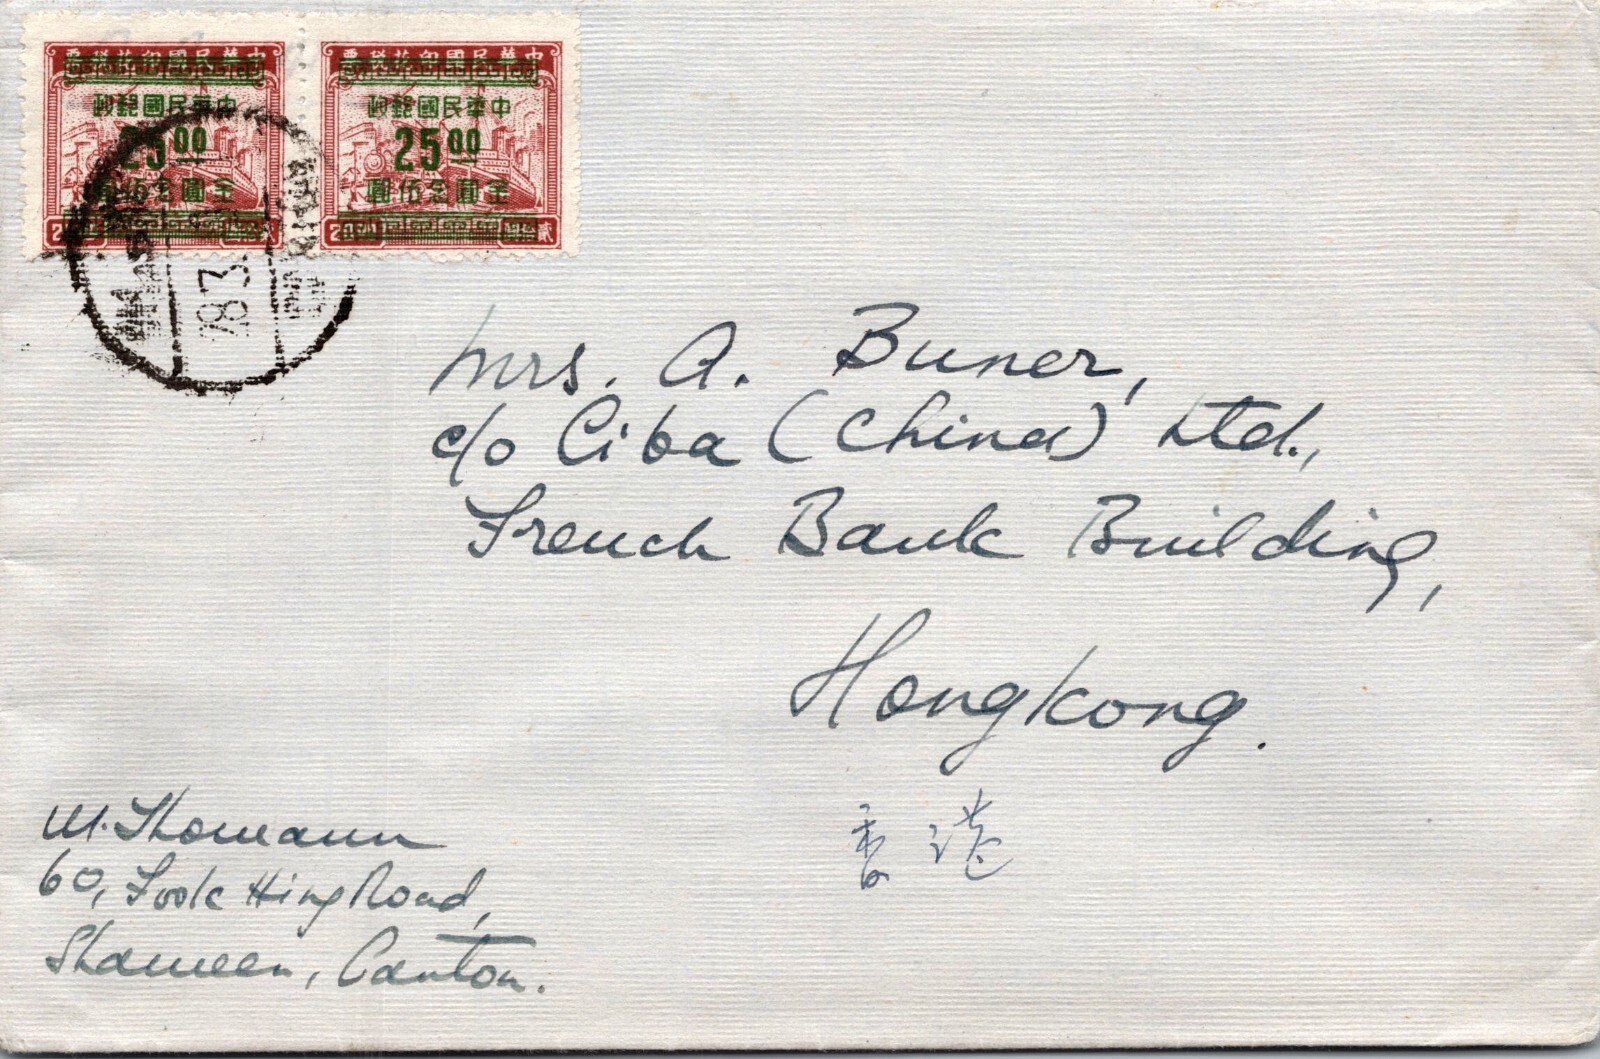 中華民國印花稅票
中華民國郵政
25 00
金圓念伍圓
中華民國印花稅票
中華民國郵政
25 00
金圓念伍圓
貳拾圓
28.3.
Mrs. A. Buner,
c/o Ciba (China) Ltd.,
French Bank Building,
Hongkong.
香港
M. Thomann
60, Fook Hing Road,
Shameen, Canton.